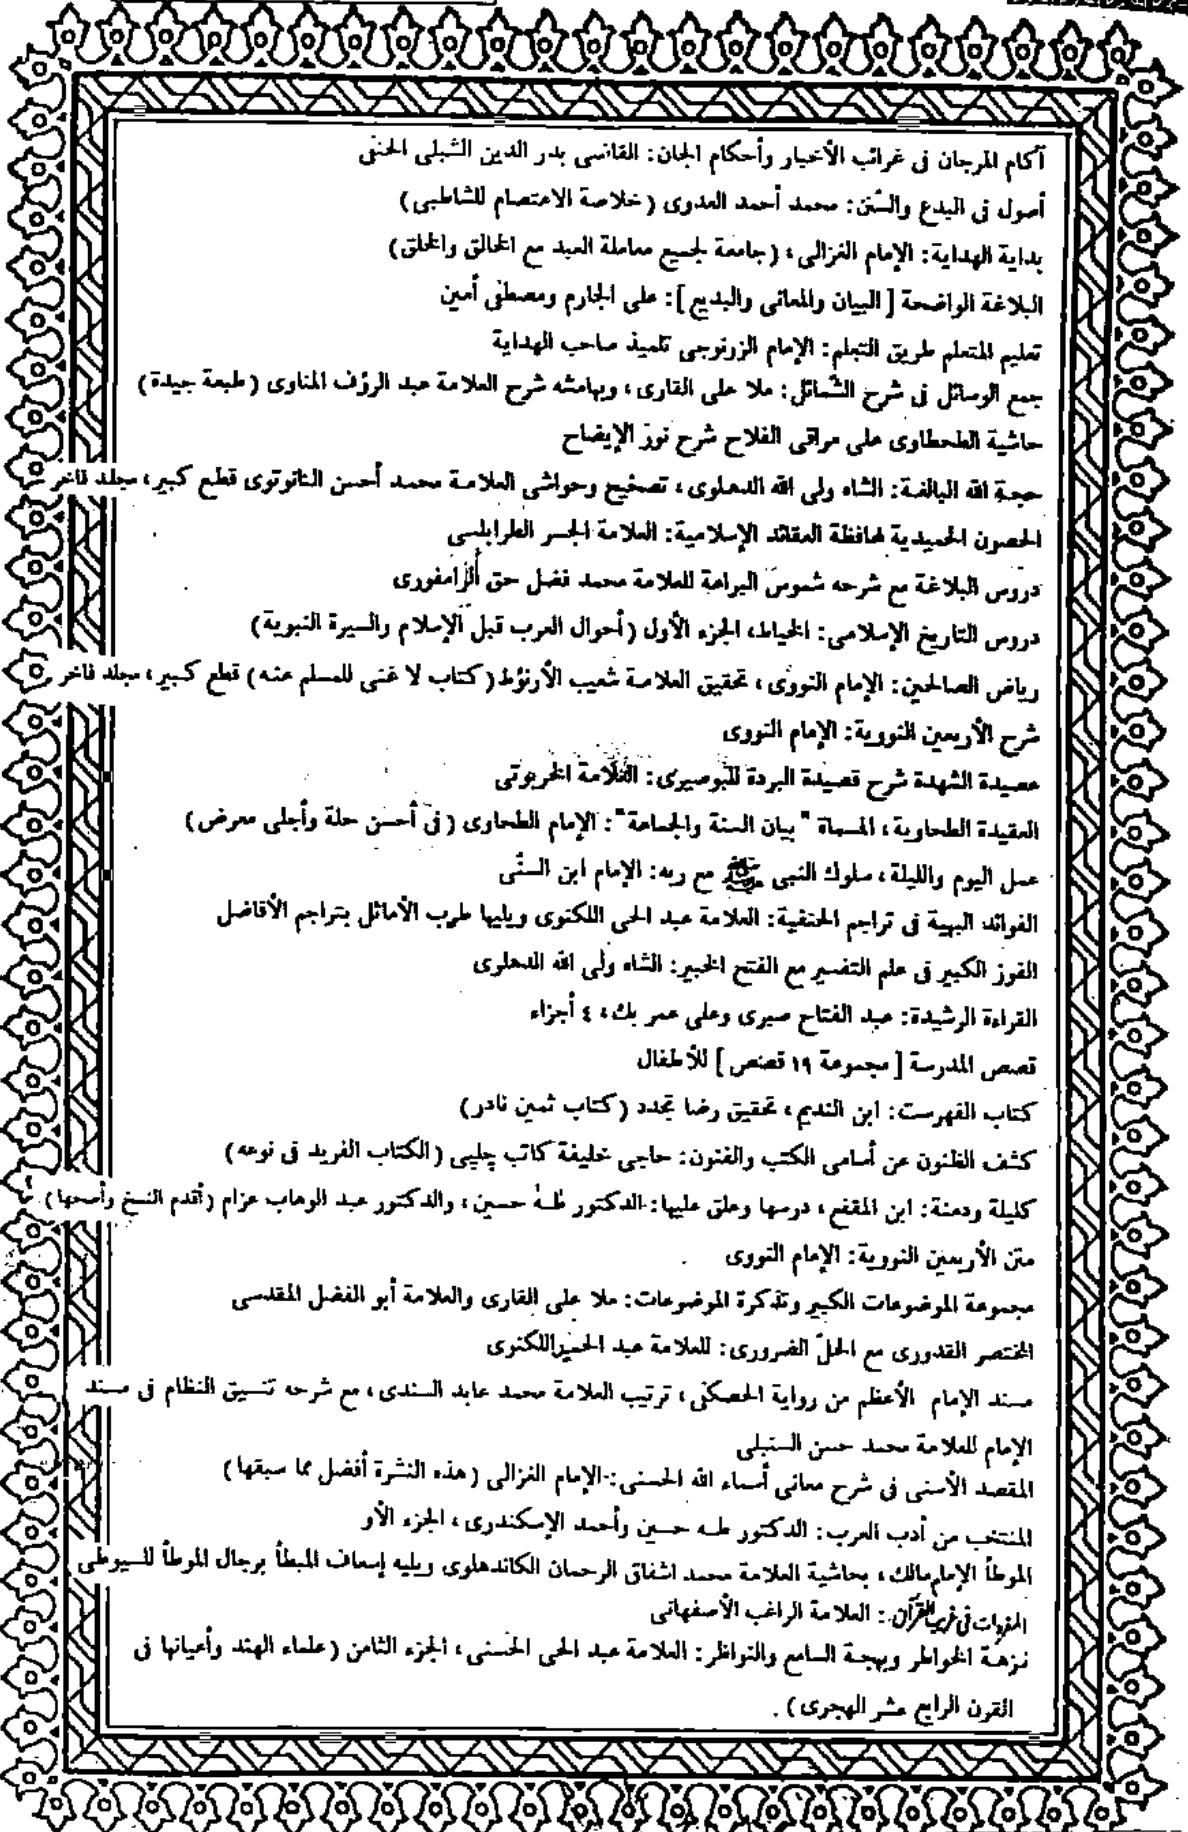 آكام المرجان فى غرائب الأخبار وأحكام الجان: القاضى بدر الدين الشبلى الحنفى
أصول فى البدع والسُنن: محمد أحمد العدوى (خلاصة الاعتصام للشاطبى)
بداية الهداية: الإمام الغزالى، (جامعة لجميع معاملة العبد مع الخالق والخلق)
البلاغة الواضحة [البيان والمعانى والبديع]: على الجارم ومصطفى أمين
تعليم المتعلم طريق التعلم: الإمام الزرنوجى تلميذ صاحب الهداية
جمع الوسائل فى شرح الشَمائل: ملا على القارى، وبهامشه شرح العلامة عبد الرؤف المناوى (طبعة جيدة)
حاشية الطحطاوى على مراقى الفلاح شرح نور الإيضاح
حجة الله البالغة: الشاه ولى الله الدهلوى، تصحيح وحواشى العلامة محمد أحسن النانوتوى قطع كبير، مجلد فاخر
الحصون الحميدية لمحافظة العقائد الإسلامية: العلامة الجسر الطرابلسى
دروس البلاغة مع شرحه شموس البراعة للعلامة محمد فضل حق الرامفورى
دروس التاريخ الإسلامى: الخياط، الجزء الأول (أحوال العرب قبل الإسلام والسيرة النبوية)
رياض الصالحين: الإمام النووى، تحقيق العلامة شعيب الأرنؤط (كتاب لا غنى للمسلم عنه) قطع كبير، مجلد فاخر
شرح الأربعين النووية: الإمام النووى
عصيدة الشهدة شرح قصيدة البردة للبوصيرى: العلامة الخربوتى
العقيدة الطحاوية، المسماة " بيان السنة والجماعة": الإمام الطحاوى (فى أحسن حلة وأجلى معرض)
عمل اليوم والليلة، سلوك النبى ﷺ مع ربه: الإمام ابن السنّى
الفوائد البهية فى تراجم الحنفية: العلامة عبد الحى اللكنوى ويليها طرب الأماثل بتراجم الأفاضل
الفوز الكبير فى علم التفسير مع الفتح الخبير: الشاه ولى الله الدهلوى
القراءة الرشيدة: عبد الفتاح صبرى وعلى عمر بك، ٤ أجزاء
قصص المدرسة [مجموعة ١٩ قصص] للأطفال
كتاب الفهرست: ابن النديم، تحقيق رضا تجدد (كتاب ثمين نادر)
كشف الظنون عن أسامى الكتب والفنون: حاجى خليفة كاتب چلپى (الكتاب الفريد فى نوعه)
كليلة ودمنة: ابن المقفع، درسها وعلق عليها: الدكتور طـهٰ حسين، والدكتور عبد الوهاب عزام (أقدم النسخ وأصحها)
متن الأربعين النووية: الإمام النووى
مجموعة الموضوعات الكبير وتذكرة الموضوعات: ملا على القارى والعلامة أبو الفضل المقدسى
المختصر القدورى مع الحلّ الضرورى: للعلامة عبد الحميد اللكنوى
مسند الإمام الأعظم من رواية الحصكفى، ترتيب العلامة محمد عابد السندى، مع شرحه تنسيق النظام فى مسند
الإمام للعلامة محمد حسن السنبلى
المقصد الأسنى فى شرح معانى أسماء الله الحسنى: الإمام الغزالى (هذه النشرة أفضل مما سبقها)
المنتخب من أدب العرب: الدكتور طـه حسين وأحمد الإسكندرى، الجزء الأو
الموطأ الإمام مالك، بحاشية العلامة محمد اشفاق الرحمان الكاندهلوى ويليه إسعاف المبطأ برجال الموطأ للسيوطى
المفردات فى غريب القرآن: العلامة الراغب الأصفهانى
نزهة الخواطر وبهجة السامع والنواظر: العلامة عبد الحى الحسنى، الجزء الثامن (علماء الهند وأعيانها فى
القرن الرابع عشر الهجرى).